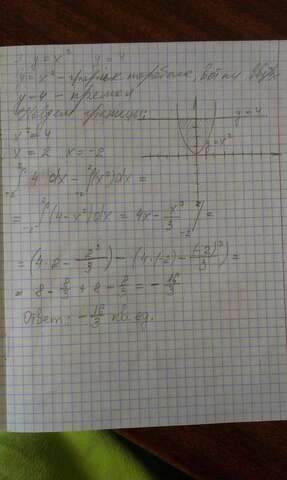 y = x² y = 4
y = x² - график парабола, ветви вверх
y = 4 - прямая
Найдем границы:
x² = 4
x = 2 x = -2
y = 4
y = x²
∫₋₂² 4 dx - ∫₋₂² (x²)dx =
= ∫₋₂² (4 - x²)dx = 4x - x³/3 |₋₂² =
= (4·2 - 2³/3) - (4·(-2) - (-2)³/3) =
= 8 - 8/3 + 8 - 8/3 = - 16/3
Ответ: - 16/3 кв. ед.